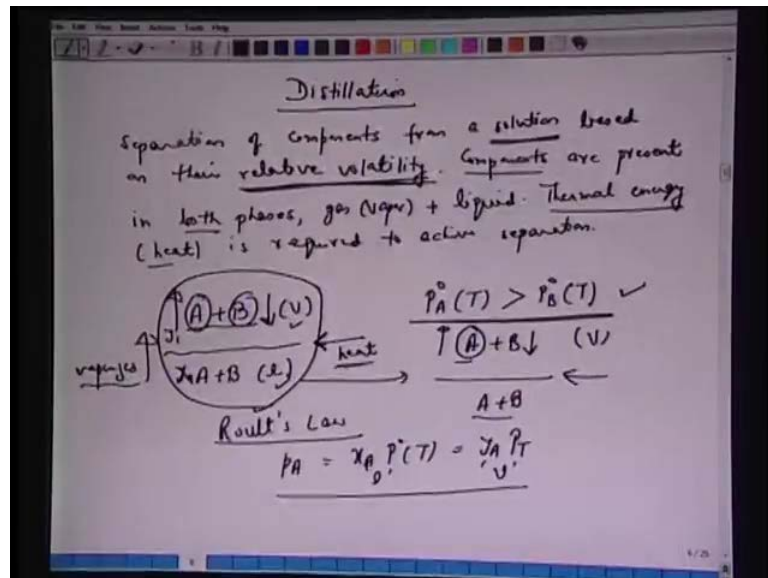 Distillation
Separation of components from a solution based
on their relative volatility. Components are present
in both phases, gas (vapor) + liquid. Thermal energy
(heat) is required to active separation.
A + B ↓ (V)
P°A (T) > P°B (T) ✓
↑ A + B ↓ (V)
heat
A + B (l)
A + B
Roult's Law
pA = xA P°(T) = yA PT
'V'
6/25